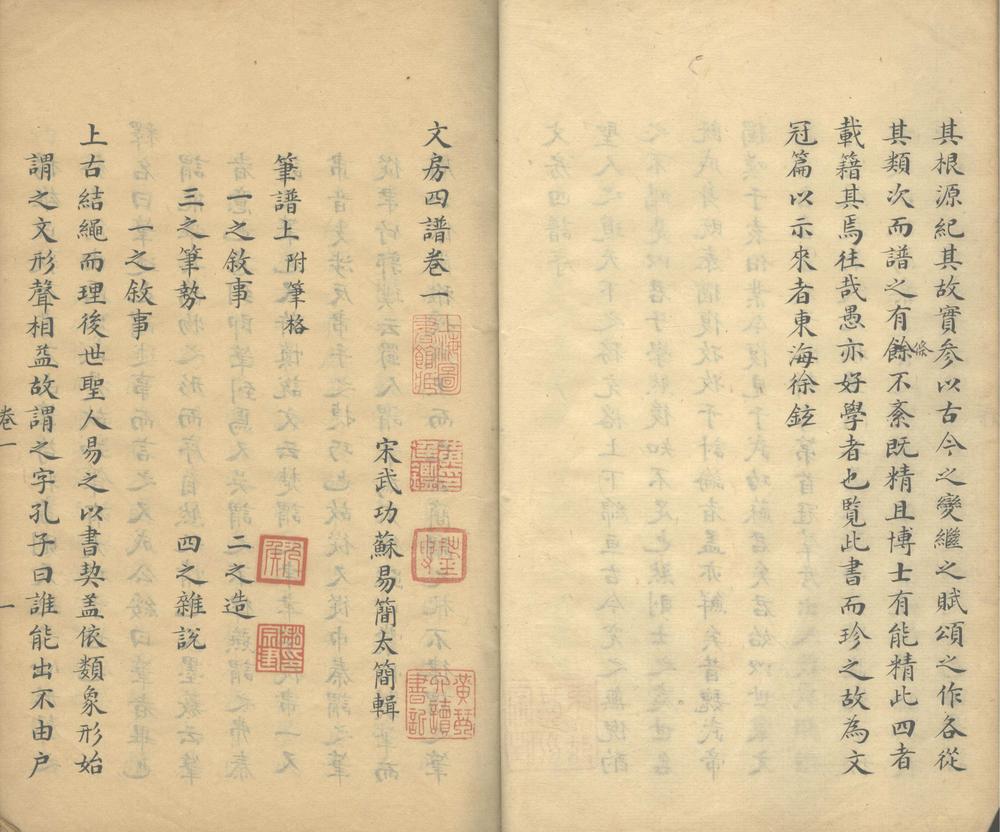 其根源紀其故實参以古今之變繼之賦頌之作各從
其類次而譜之有餘不紊既精且博士有能精此四者
條
載籍其焉往哉愚亦好學者也覧此書而珍之故為文
冠篇以示來者東海徐鉉
文房四譜卷一
宋武功蘇易簡太簡輯
筆譜上附筆格
一之敘事 二之造
三之筆勢 四之雜說
一之敘事
上古結繩而理後世聖人易之以書契盖依類象形始
謂之文形聲相益故謂之字孔子曰誰能出不由户
卷一
一
黃琴六讀書記